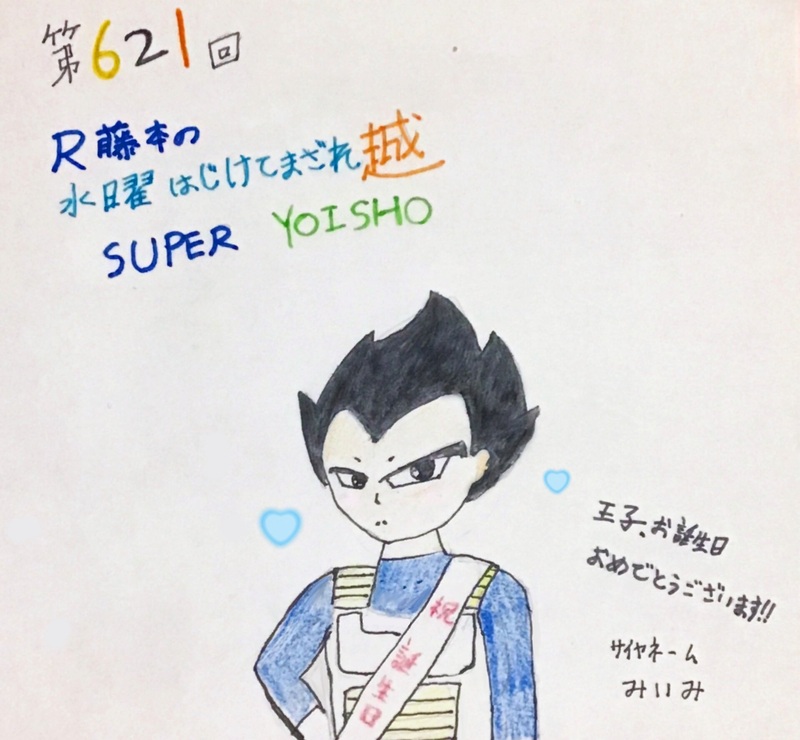 第621回
R藤本の
水曜はじけてまざれ越
SUPER YOISHO
王子、お誕生日
おめでとうございます!!
サイヤネーム
みいみ
祝 誕生日